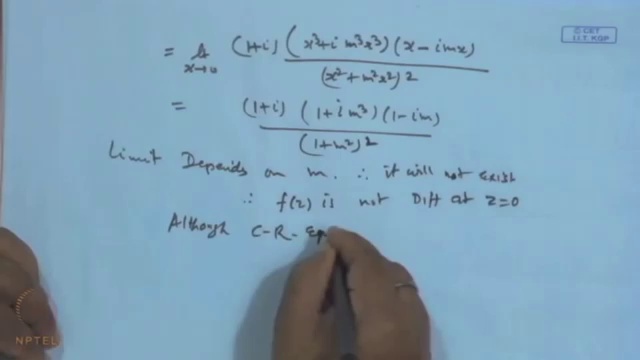 © CET
I.I.T. KGP
= lim x→0 (1+i) (x³+i m³x³) (x-imx) / (x²+m²x²)²
= (1+i) (1+im³) (1-im) / (1+m²)²
Limit Depends on m. ∴ it will not exist
∴ f(z) is not Diff at z=0
Although C-R-Eq
NPTEL